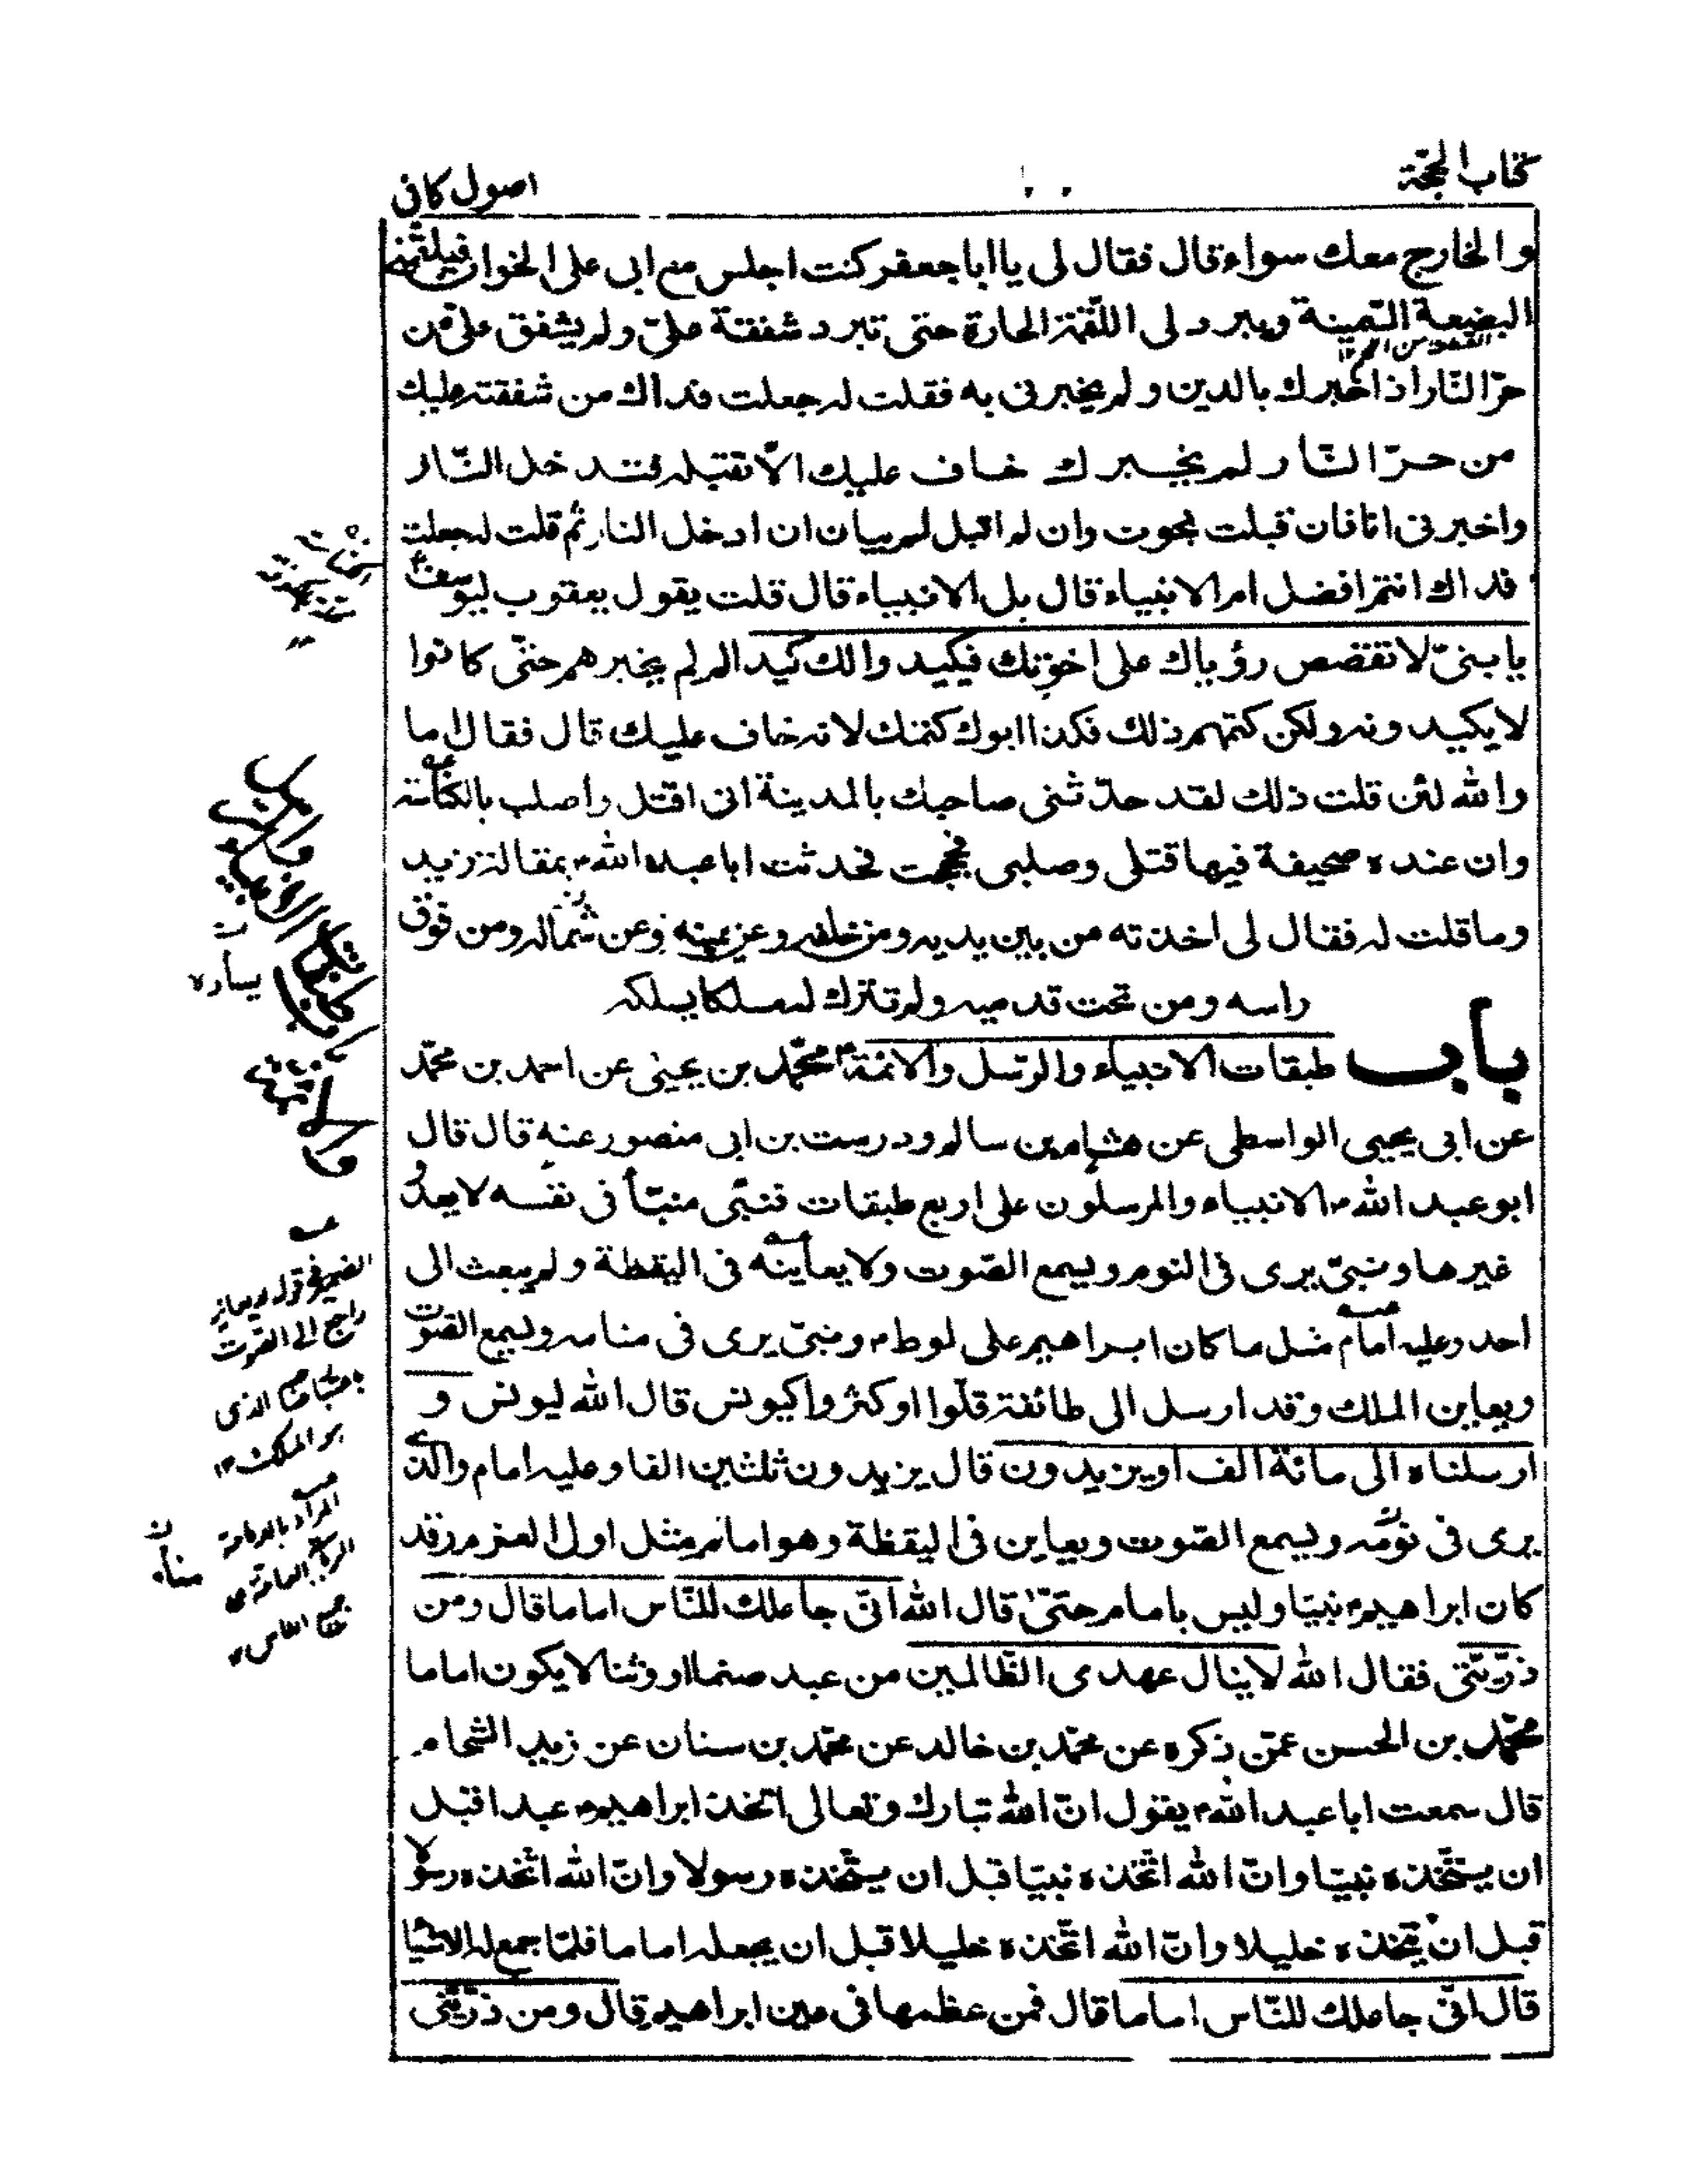 كتاب الحجّة
اصول كافى
والخارج معك سواء قال فقال لى يا ابا جعفر كنت اجلس مع ابى على الخوان فيلقمنى
البضعة السّمينة ويبرد لى اللّقمة الحارة حتى تبرد شفقة علىّ ولم يشفق علىّ من
حرّ النّار اذا اخبرك بالدين ولم يخبرنى به فقلت له جعلت فداك من شفقته عليك
من حرّ النّار لم يخبرك خاف عليك الّا تقبله فتدخل النّار
واخبرنى انا فان قبلت نجوت وان لم اقبل لم يبال ان ادخل النار ثم قلت له جعلت
فداك انتم افضل ام الانبياء قال بل الانبياء قال قلت يقول يعقوب ليوسف
يا بنىّ لا تقصص رؤياك على اخوتك فيكيدوا لك كيدا لم لم يخبرهم حتّى كانوا
لا يكيدونه ولكن كتمهم ذلك فكذا ابوك كتمك لانه خاف عليك قال فقال اما
والله لئن قلت ذلك لقد حدّثنى صاحبك بالمدينة انى اقتل واصلب بالكناسة
وان عنده صحيفة فيها قتلى وصلبى فحججت فحدثت ابا عبد الله ع بمقالة زيد
وما قلت له فقال لى اخذته من بين يديه ومن خلفه وعن يمينه وعن شماله ومن فوق
راسه ومن تحت قدميه ولم تترك له مسلكا يسلكه
باب طبقات الانبياء والرّسل والائمّة ع محمّد بن يحيى عن احمد بن محمّد
عن ابى يحيى الواسطى عن هشام بن سالم ودرست بن ابى منصور عنه قال قال
ابو عبد الله ع الانبياء والمرسلون على اربع طبقات فنبىّ منبّأ فى نفسه لا يعدو
غيرها ونبىّ يرى فى النوم ويسمع الصّوت ولا يعاينه فى اليقظة ولم يبعث الى
احد وعليه امام مثل ما كان ابراهيم على لوط ع ونبىّ يرى فى منامه ويسمع الصّوت
ويعاين الملك وقد ارسل الى طائفة قلّوا او كثروا كيونس قال الله ليونس و
ارسلناه الى مائة الف او يزيدون قال يزيدون ثلثين الفا وعليه امام والّذى
يرى فى نومه ويسمع الصّوت ويعاين فى اليقظة وهو امام مثل اولى العزم وقد
كان ابراهيم ع نبيّا وليس بامام حتّى قال الله انّى جاعلك للنّاس اماما قال ومن
ذرّيّتى فقال الله لا ينال عهدى الظّالمين من عبد صنما او وثنا لا يكون اماما
محمّد بن الحسن عمّن ذكره عن محمّد بن خالد عن محمّد بن سنان عن زيد الشّحام
قال سمعت ابا عبد الله ع يقول انّ الله تبارك وتعالى اتّخذ ابراهيم ع عبدا قبل
ان يتّخذه نبيّا وانّ الله اتّخذه نبيّا قبل ان يتّخذه رسولا وانّ الله اتّخذه رسولا
قبل ان يتّخذه خليلا وانّ الله اتّخذه خليلا قبل ان يجعله اماما فلمّا جمع له الاشياء
قال انّى جاعلك للنّاس اماما قال فمن عظمها فى عين ابراهيم قال ومن ذرّيّتى
يساره
راجع الى الصّوت
الذى
هو الملك ١٢